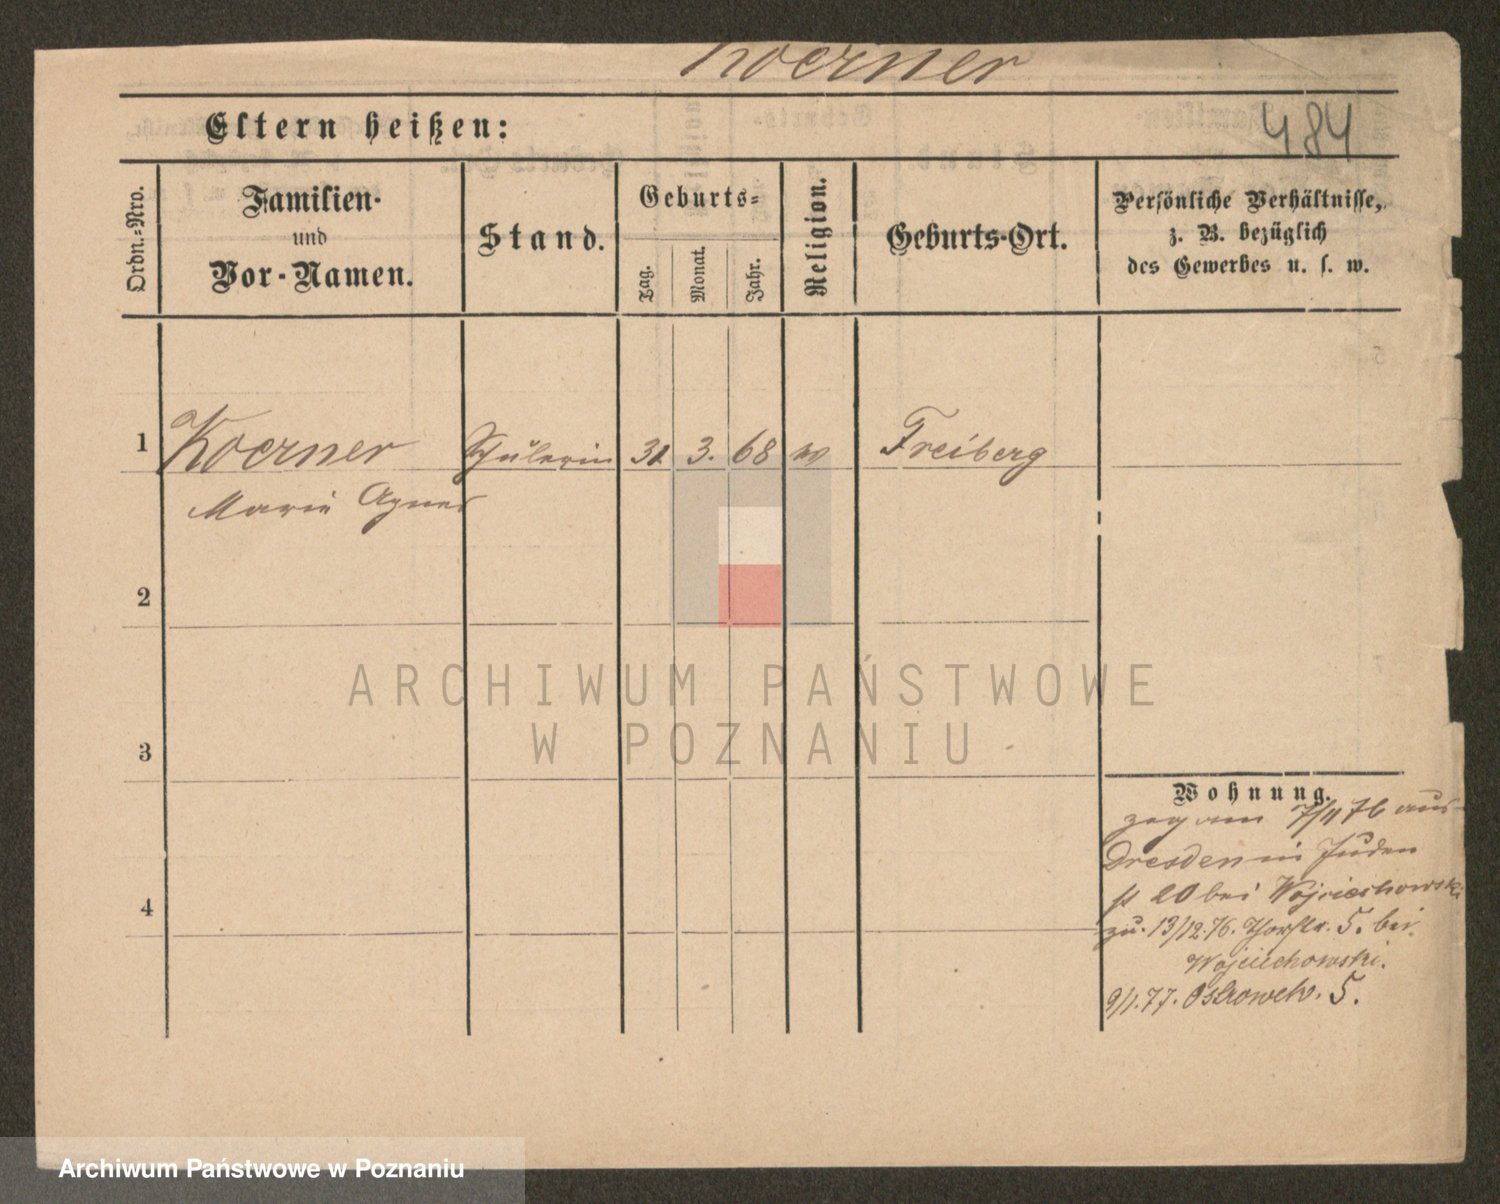 Koerner
Eltern heißen:
484
Ordn.-Nro.
Familien-
und
Vor-Namen.
Stand.
Geburts-
Tag.
Monat.
Jahr.
Religion.
Geburts-Ort.
Persönliche Verhältnisse,
z. B. bezüglich
des Gewerbes u. s. w.
1
Koerner
Schülerin
31
3.
68
Freiberg
Marie Agnes
2
3
4
ARCHIWUM PAŃSTWOWE
W POZNANIU
Wohnung.
zog am 7/11 76 aus
Dresden in Juden
st 20 bei Wojciechowski
zu. 13/12.76. Thorstr. 5. bei
Wojciechowski.
9/1.77. Ostrowek. 5.
Archiwum Państwowe w Poznaniu